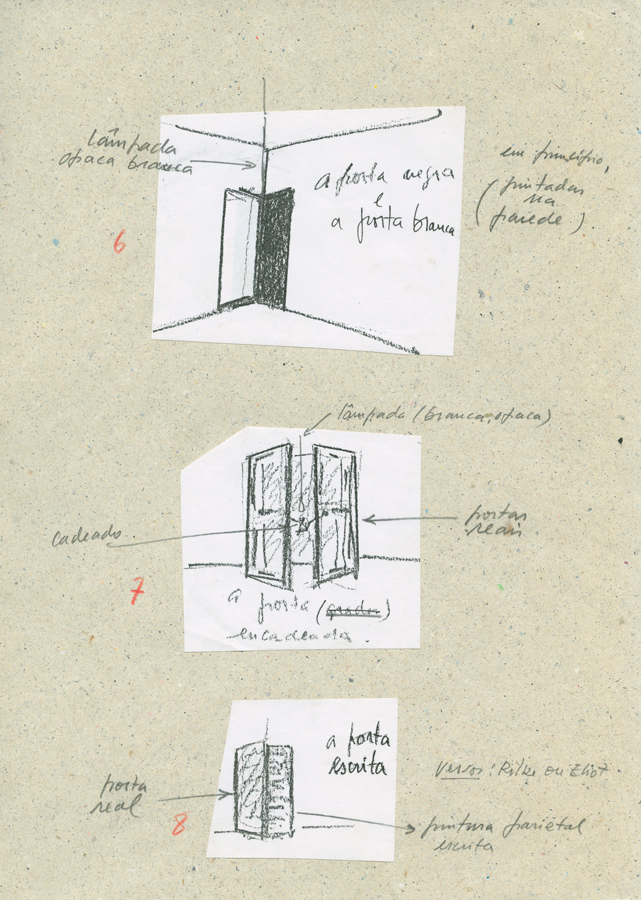 lâmpada
opaca branca
a porta negra
e
a porta branca
em princípio,
(pintadas
na
parede)
6
lâmpada (branca, opaca)
cadeado
portas
reais
7
a porta
encadeada.
a porta
escrita
Versos: Rilke ou Eliot
porta
real
8
pintura parietal
escrita